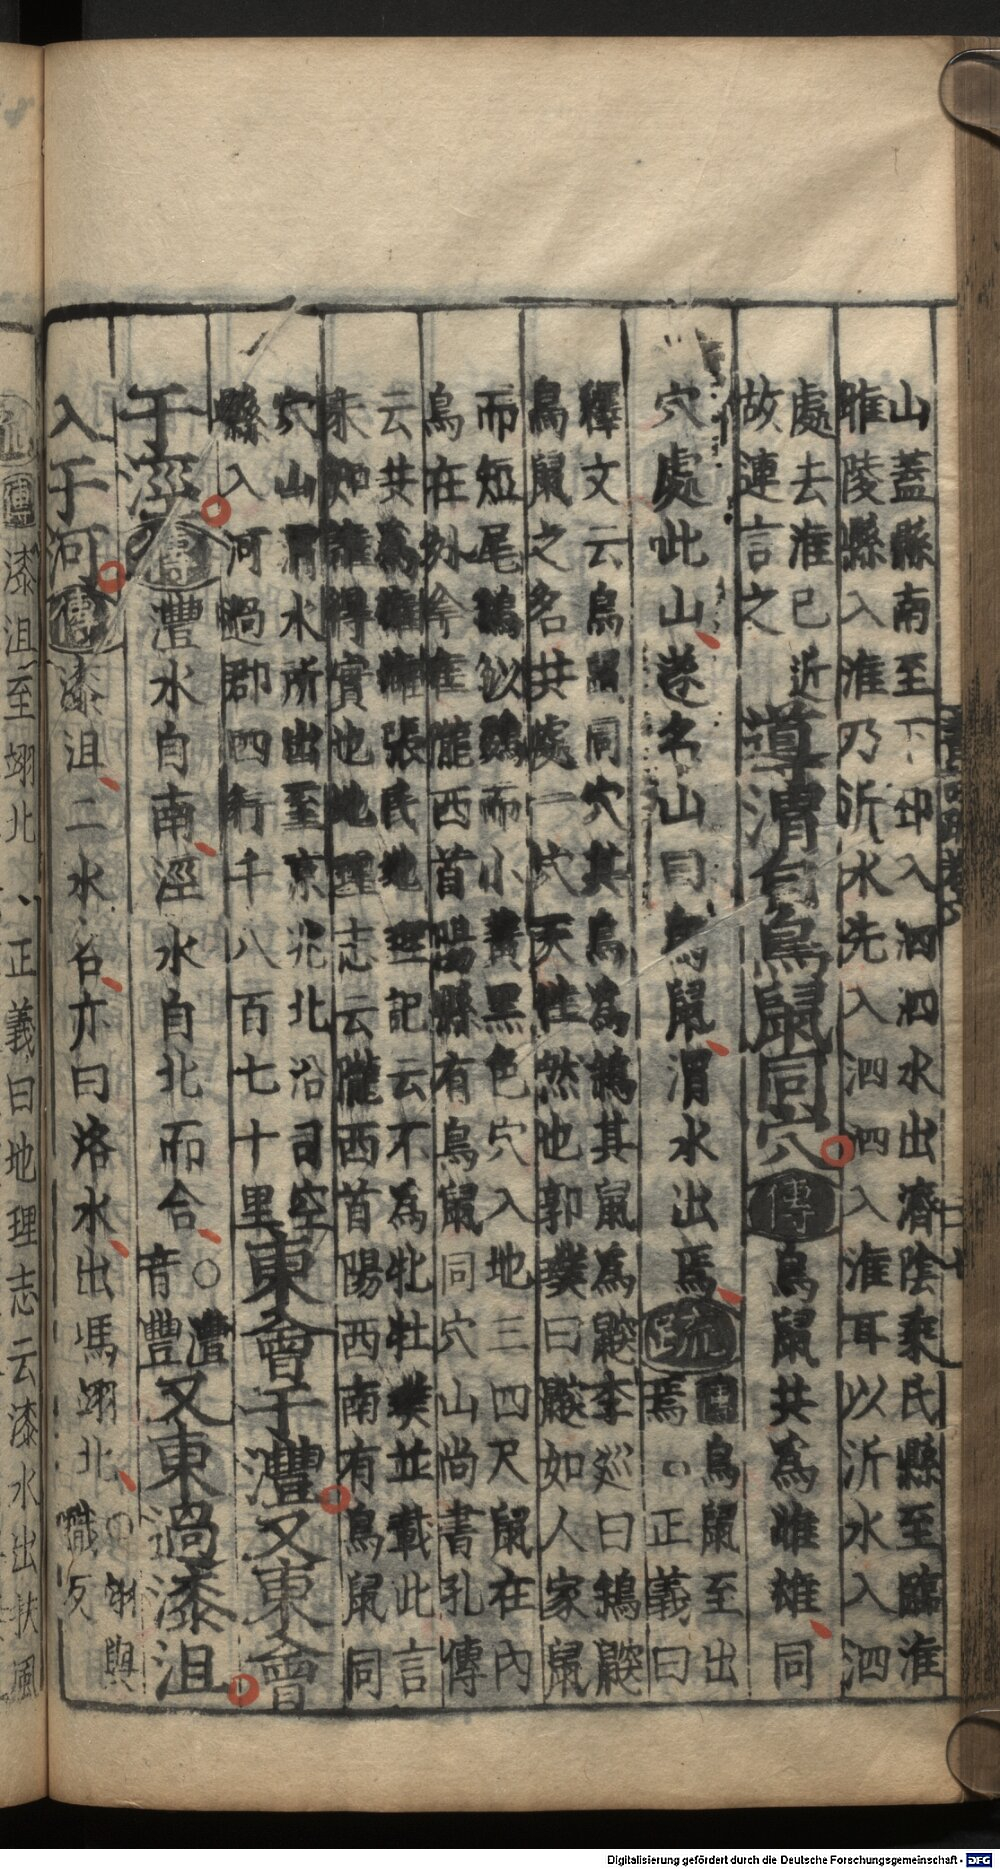 山蓋縣南至下邳入泗泗水出濟陰乘氏縣至臨淮
睢陵縣入淮乃沂水先入泗泗入淮耳以沂水入泗
處去淮已近
故連言之
導渭自鳥鼠同穴
傳
鳥鼠共為雌雄同
穴處此山遂名山曰鳥鼠渭水出焉
疏
鳥鼠至出
焉○正義曰
釋文云鳥鼠同穴其鳥為鵌其鼠為鼵李巡曰鵌鼵
鳥鼠之名共處一穴天性然也郭璞曰鼵如人家鼠
而短尾鵌似鵽而小黃黑色穴入地三四尺鼠在內
鳥在外今在隴西首陽縣有鳥鼠同穴山尚書孔傳
云共為雄雌張氏地理記云不為牝牡璞並載此言
未知誰得實也地理志云隴西首陽西南有鳥鼠同
穴山渭水所出至京兆北沿司空
縣入河過郡四行千八百七十里
東會于灃又東會
于涇
傳
灃水自南涇水自北而合
○灃
音豐
又東過漆沮
入于河
傳
漆沮二水名亦曰洛水出馮翊北
○翊與
職反
漆沮至翊北
正義曰地理志云漆水出扶風
Digitalisierung gefördert durch die Deutsche Forschungsgemeinschaft - DFG